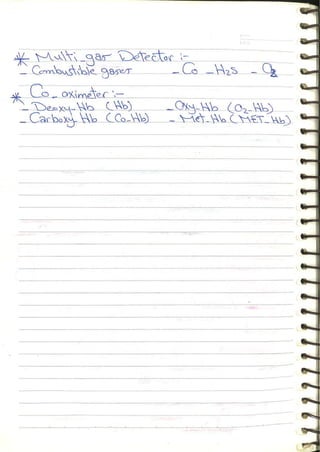 * Multi-gas Detector :-
- Combustible gases - Co - H2S - O2
* Co-oximeter :-
- Deoxy-Hb (Hb) - Oxy-Hb (O2-Hb)
- Carboxy-Hb (Co-Hb) - Met-Hb (MET-Hb)